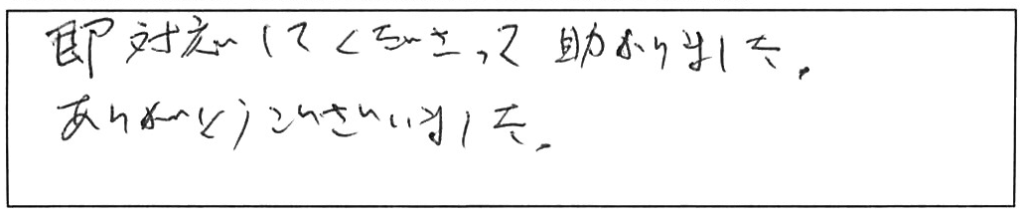 即対応してくださって助かりました。
ありがとうございました。